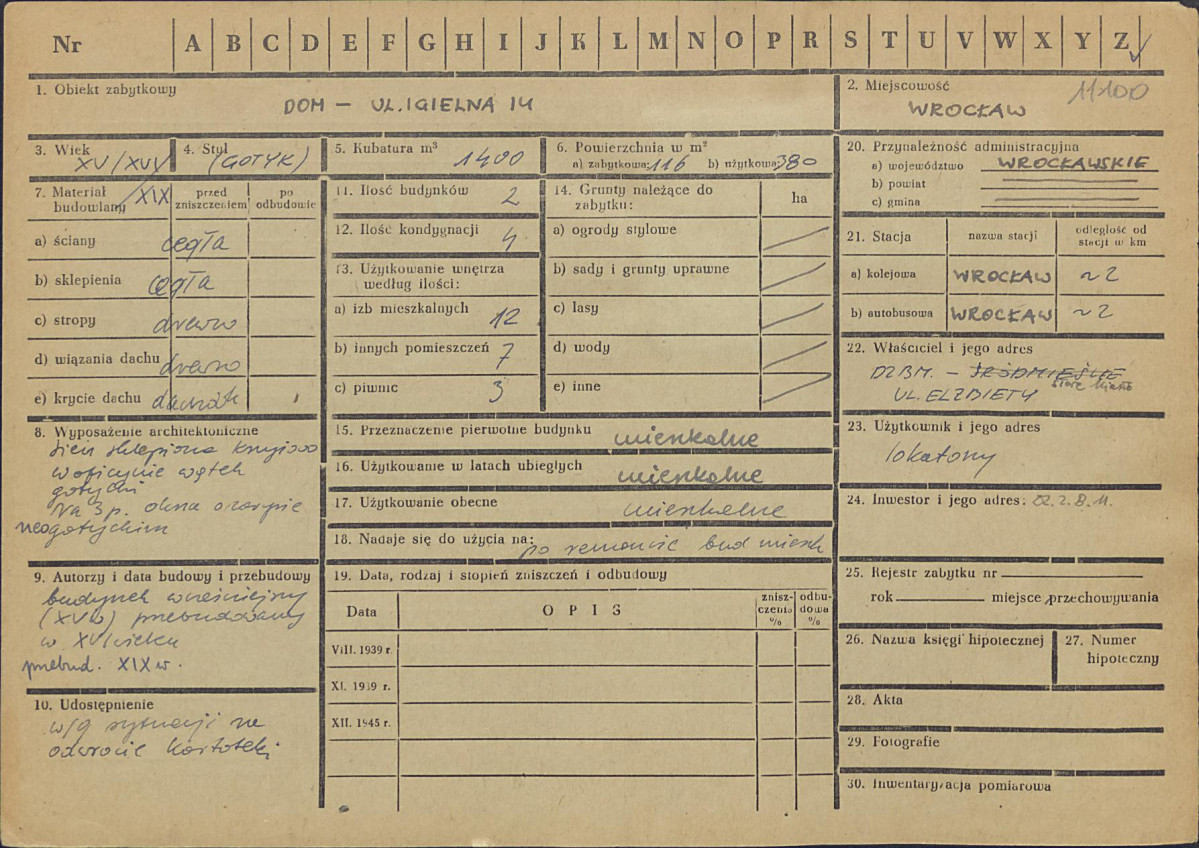 Nr A B C D E F G H I J K L M N O P R S T U V W X Y Z
1. Obiekt zabytkowy
DOM – UL. IGIELNA 14
2. Miejscowość
11100
WROCŁAW
3. Wiek
XV/XVI/XIX
4. Styl
(GOTYK)
5. Kubatura m³
1400
6. Powierzchnia w m²
a) zabytkowa: 116 b) użytkowa: 380
7. Materiał budowlany
przed zniszczeniem
po odbudowie
a) ściany cegła
b) sklepienia cegła
c) stropy drewno
d) wiązania dachu drewno
e) krycie dachu dachówk
8. Wyposażenie architektoniczne
sień sklepiona krzyżowo
w oficynie wątek
gotycki
Na 3 p. okna o zarysie
neogotyckim
9. Autorzy i data budowy i przebudowy
budynek wcześniejszy
(XVw) przebudowany
w XVI wieku
przebud. XIX w.
10. Udostępnienie
w/g sytuacji na
odwrocie kartoteki
11. Ilość budynków
2
12. Ilość kondygnacji
4
13. Użytkowanie wnętrza
według ilości:
a) izb mieszkalnych
12
b) innych pomieszczeń 7
c) piwnic 3
14. Grunty należące do
zabytku:
ha
a) ogrody stylowe
b) sady i grunty uprawne
c) lasy
d) wody
e) inne
15. Przeznaczenie pierwotne budynku mieszkalne
16. Użytkowanie w latach ubiegłych mieszkalne
17. Użytkowanie obecne mieszkalne
18. Nadaje się do użycia na: po remoncie bud mieszk
19. Data, rodzaj i stopień zniszczeń i odbudowy
Data
O P I S
znisz-
czenia
%
odbu-
dowa
%
VIII. 1939 r.
XI. 1939 r.
XII. 1945 r.
20. Przynależność administracyjna
a) województwo WROCŁAWSKIE
b) powiat
c) gmina
21. Stacja
nazwa stacji
odległość od
stacji w km
a) kolejowa WROCŁAW ~ 2
b) autobusowa WROCŁAW ~ 2
22. Właściciel i jego adres
DZBM. – ŚRÓDMIEŚCIE
Stare Miasto
UL. ELŻBIETY
23. Użytkownik i jego adres
lokatorzy
24. Inwestor i jego adres:
25. Rejestr zabytku nr
rok miejsce przechowywania
26. Nazwa księgi hipotecznej
27. Numer
hipoteczny
28. Akta
29. Fotografie
30. Inwentaryzacja pomiarowa